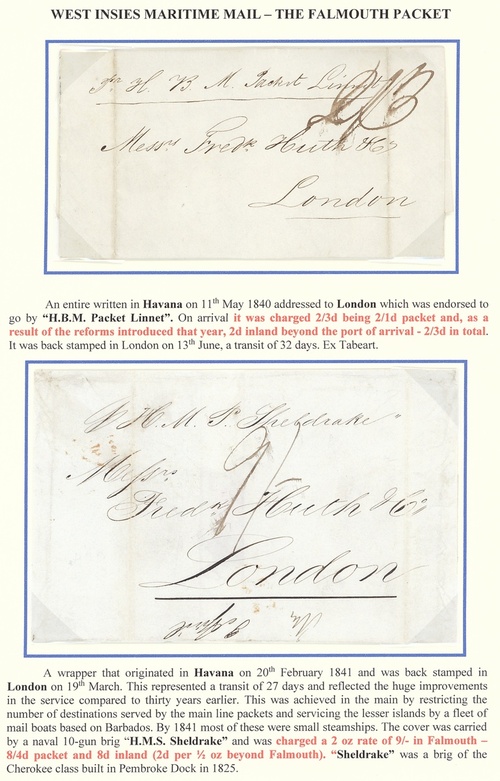 WEST INSIES MARITIME MAIL – THE FALMOUTH PACKET
Pr H. B. M. Packet Linnet
2/3
Messrs Fredk Huth & Co
London
An entire written in Havana on 11th May 1840 addressed to London which was endorsed to
go by “H.B.M. Packet Linnet”. On arrival it was charged 2/3d being 2/1d packet and, as a
result of the reforms introduced that year, 2d inland beyond the port of arrival - 2/3d in total.
It was back stamped in London on 13th June, a transit of 32 days. Ex Tabeart.
H. M. P. Sheldrake
9/
Messrs
Fredk Huth & Co
London
A wrapper that originated in Havana on 20th February 1841 and was back stamped in
London on 19th March. This represented a transit of 27 days and reflected the huge improvements
in the service compared to thirty years earlier. This was achieved in the main by restricting the
number of destinations served by the main line packets and servicing the lesser islands by a fleet of
mail boats based on Barbados. By 1841 most of these were small steamships. The cover was carried
by a naval 10-gun brig “H.M.S. Sheldrake” and was charged a 2 oz rate of 9/- in Falmouth –
8/4d packet and 8d inland (2d per ½ oz beyond Falmouth). “Sheldrake” was a brig of the
Cherokee class built in Pembroke Dock in 1825.